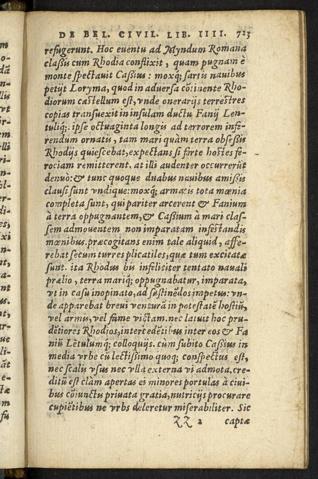 DE BEL. CIVIL. LIB. IIII. 723
refugerunt. Hoc euentu ad Myndum Romana
classis cum Rhodia conflixit, quam pugnam è
monte spectauit Cassius: moxq; sartis nauibus
petijt Loryma, quod in aduersa cōtinente Rho-
diorum castellum est, vnde onerarijs terrestres
copias transuexit in insulam ductu Fanij Len-
tuliq; ipse octuaginta longis ad terrorem infe-
rendum ornatis, tam mari quàm terra obsessis
Rhodijs quiescebat, expectans si forte hostes fe-
rociam remitterent. at illi audenter occurrerūt
denuò: & tunc quoque duabus nauibus amissis
clausi sunt vndique: moxq; armatis tota mœnia
completa sunt, qui pariter arcerent & Fanium
à terra oppugnantem, & Cassium à mari clas-
sem admouentem non imparatam infestandis
mœnibus. præcogitans enim tale aliquid, affe-
rebat secum turres plicatiles, quæ tum excitatæ
sunt. ita Rhodus bis infeliciter tentato nauali
prælio, terra mariq; oppugnabatur, imparata,
vt in casu inopinato, ad sustinēdos impetus: vn-
de apparebat breui venturā in potestatē hostiū,
vel armis, vel fame victam. nec latuit hoc pru-
dētiores Rhodios, interceditibus inter eos & Fa
niū Lētulumq; colloquijs. cùm subito Cassius in
media vrbe cū lectissimo quoq; conspectus est,
nec scalis vsus nec vlla externa vi admota. cre-
ditū est clàm apertas ei minores portulas à ciui-
bus cōiunctis priuata gratia, nutricijs procurare
cupiētibus ne vrbs deleretur miserabiliter. Sic
ZZ 2 captæ